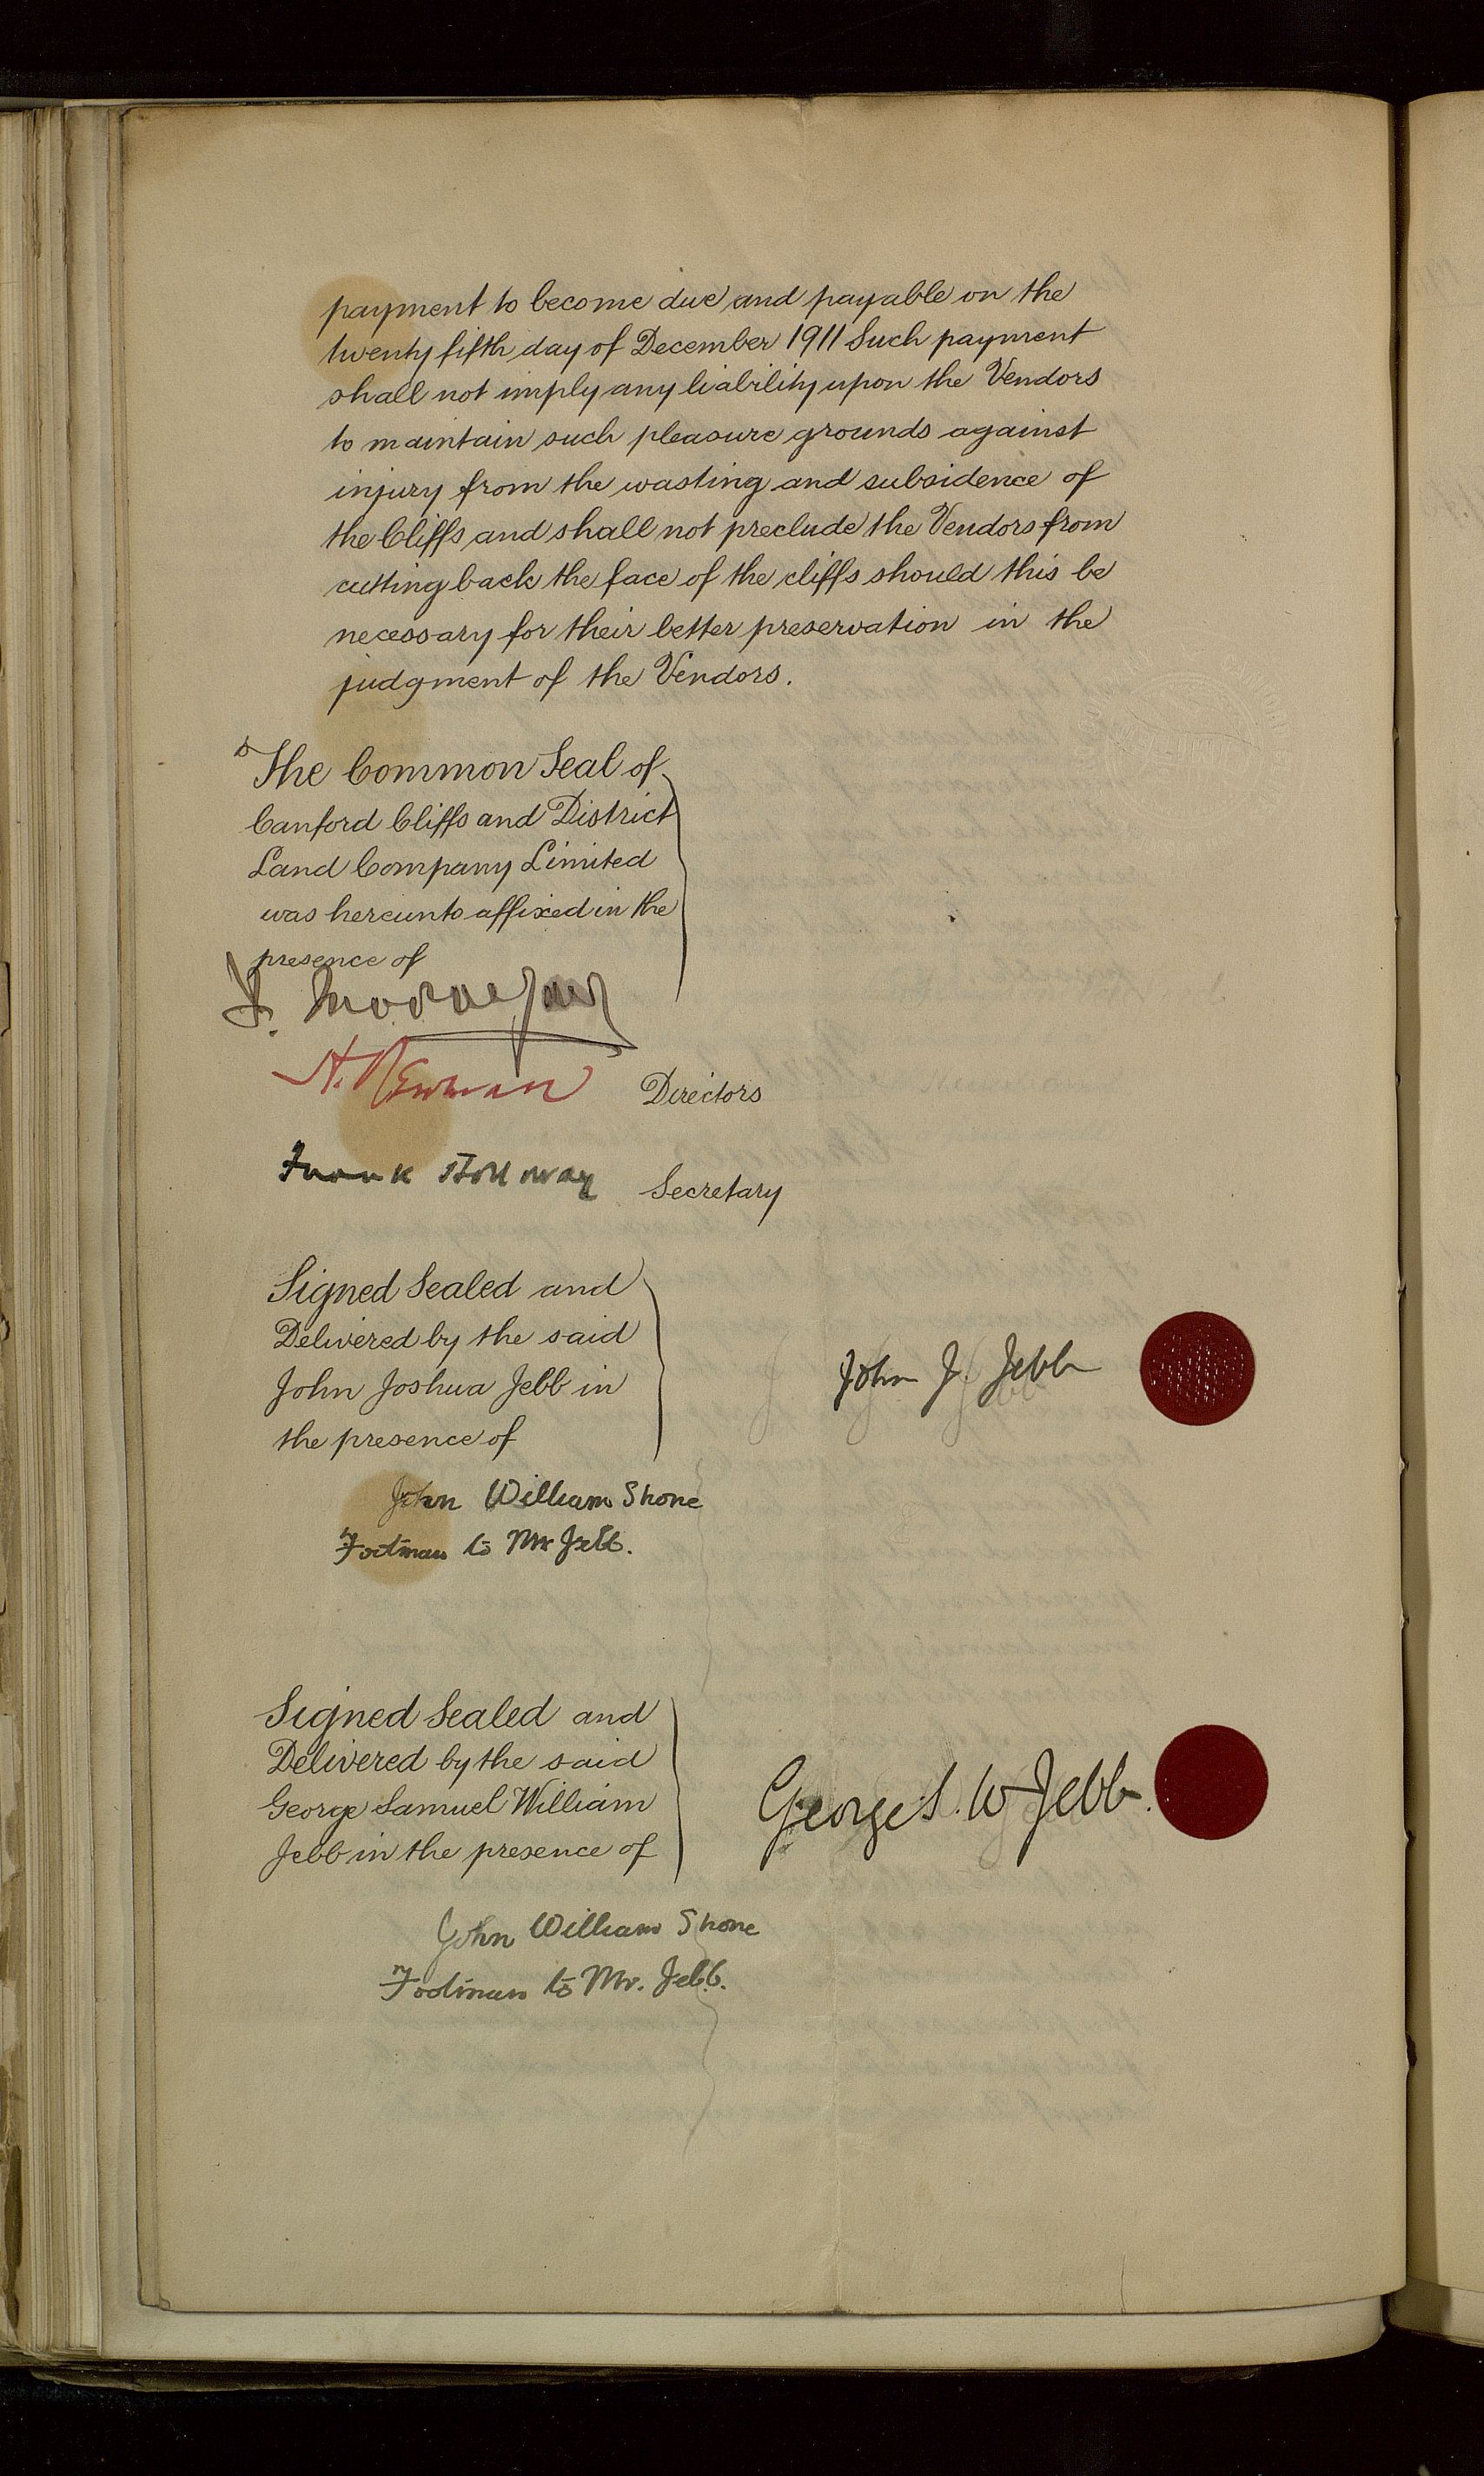 payment to become due and payable on the
twenty fifth day of December 1911 Such payment
shall not imply any liability upon the Vendors
to maintain such pleasure grounds against
injury from the wasting and subsidence of
the Cliffs and shall not preclude the Vendors from
cutting back the face of the cliffs should this be
necessary for their better preservation in the
judgment of the Vendors.
The Common Seal of
Canford Cliffs and District
Land Company Limited
was hereunto affixed in the
presence of
A. Newman Directors
Frank Secretary
Signed Sealed and
Delivered by the said
John Joshua Jebb in
the presence of
John J. Jebb
John William Shone
Footman to Mr Jebb.
Signed Sealed and
Delivered by the said
George Samuel William
Jebb in the presence of
George S. W Jebb.
John William Shone
Footman to Mr. Jebb.